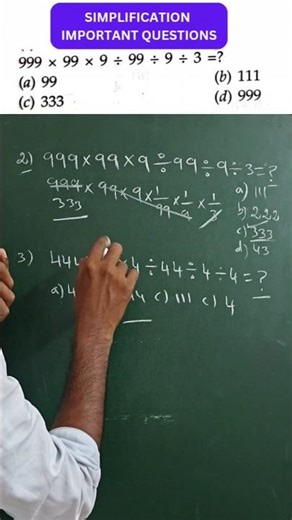 SIMPLIFICATION
IMPORTANT QUESTIONS
999 × 99 × 9 ÷ 99 ÷ 9 ÷ 3 =?
(a) 99 (b) 111
(c) 333 (d) 999
2) 999×99×9÷99÷9÷3=?
999 × 99 × 9 × 1/99 × 1/9 × 1/3
333
a) 111
b) 222
c) 333
d) 43
3) 444 4÷44÷4÷4=?
a)4 4 c) 111 c) 4